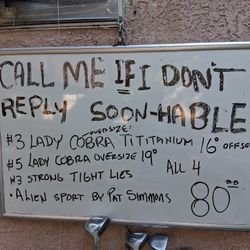 CALL ME IF I DON'T
REPLY SOON-HABLE
OVERSIZE!
#3 LADY COBRA TITITANIUM 16° OFFSE
#5 LADY COBRA OVERSIZE 19°
#3 STRONG TIGHT LIES ALL 4
• ALIEN SPORT BY PAT SIMMONS 80.00